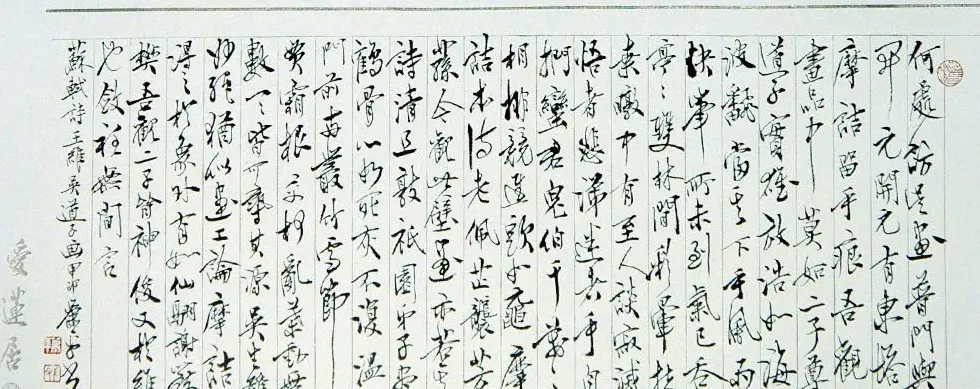 何處訪吳畫普門與
開元開元有東塔
摩詰留手痕吾觀
畫品中莫如二子尊
道子實雄放浩如海
波翻當其下手風雨
快筆所未到氣已吞
亭〻雙林間彩暈扶
桑暾中有至人談寂滅
悟者悲涕迷者手自
捫蠻君鬼伯千萬〻
相排競進頭如黿摩
詰本詩老佩芷襲芳
蓀今觀此壁畫亦若其
詩清且敦祇園弟子盡
鶴骨心如死灰不復溫
門前兩叢竹雪節
貫霜根交柯亂葉動無
數一〻皆可尋其源吳生雖
妙絕猶似畫工論摩詰
得之於象外有如仙翮謝籠
樊吾觀二子皆神俊又於維
也斂衽無間言
蘇軾詩王維吳道子画甲申
愛蓮居